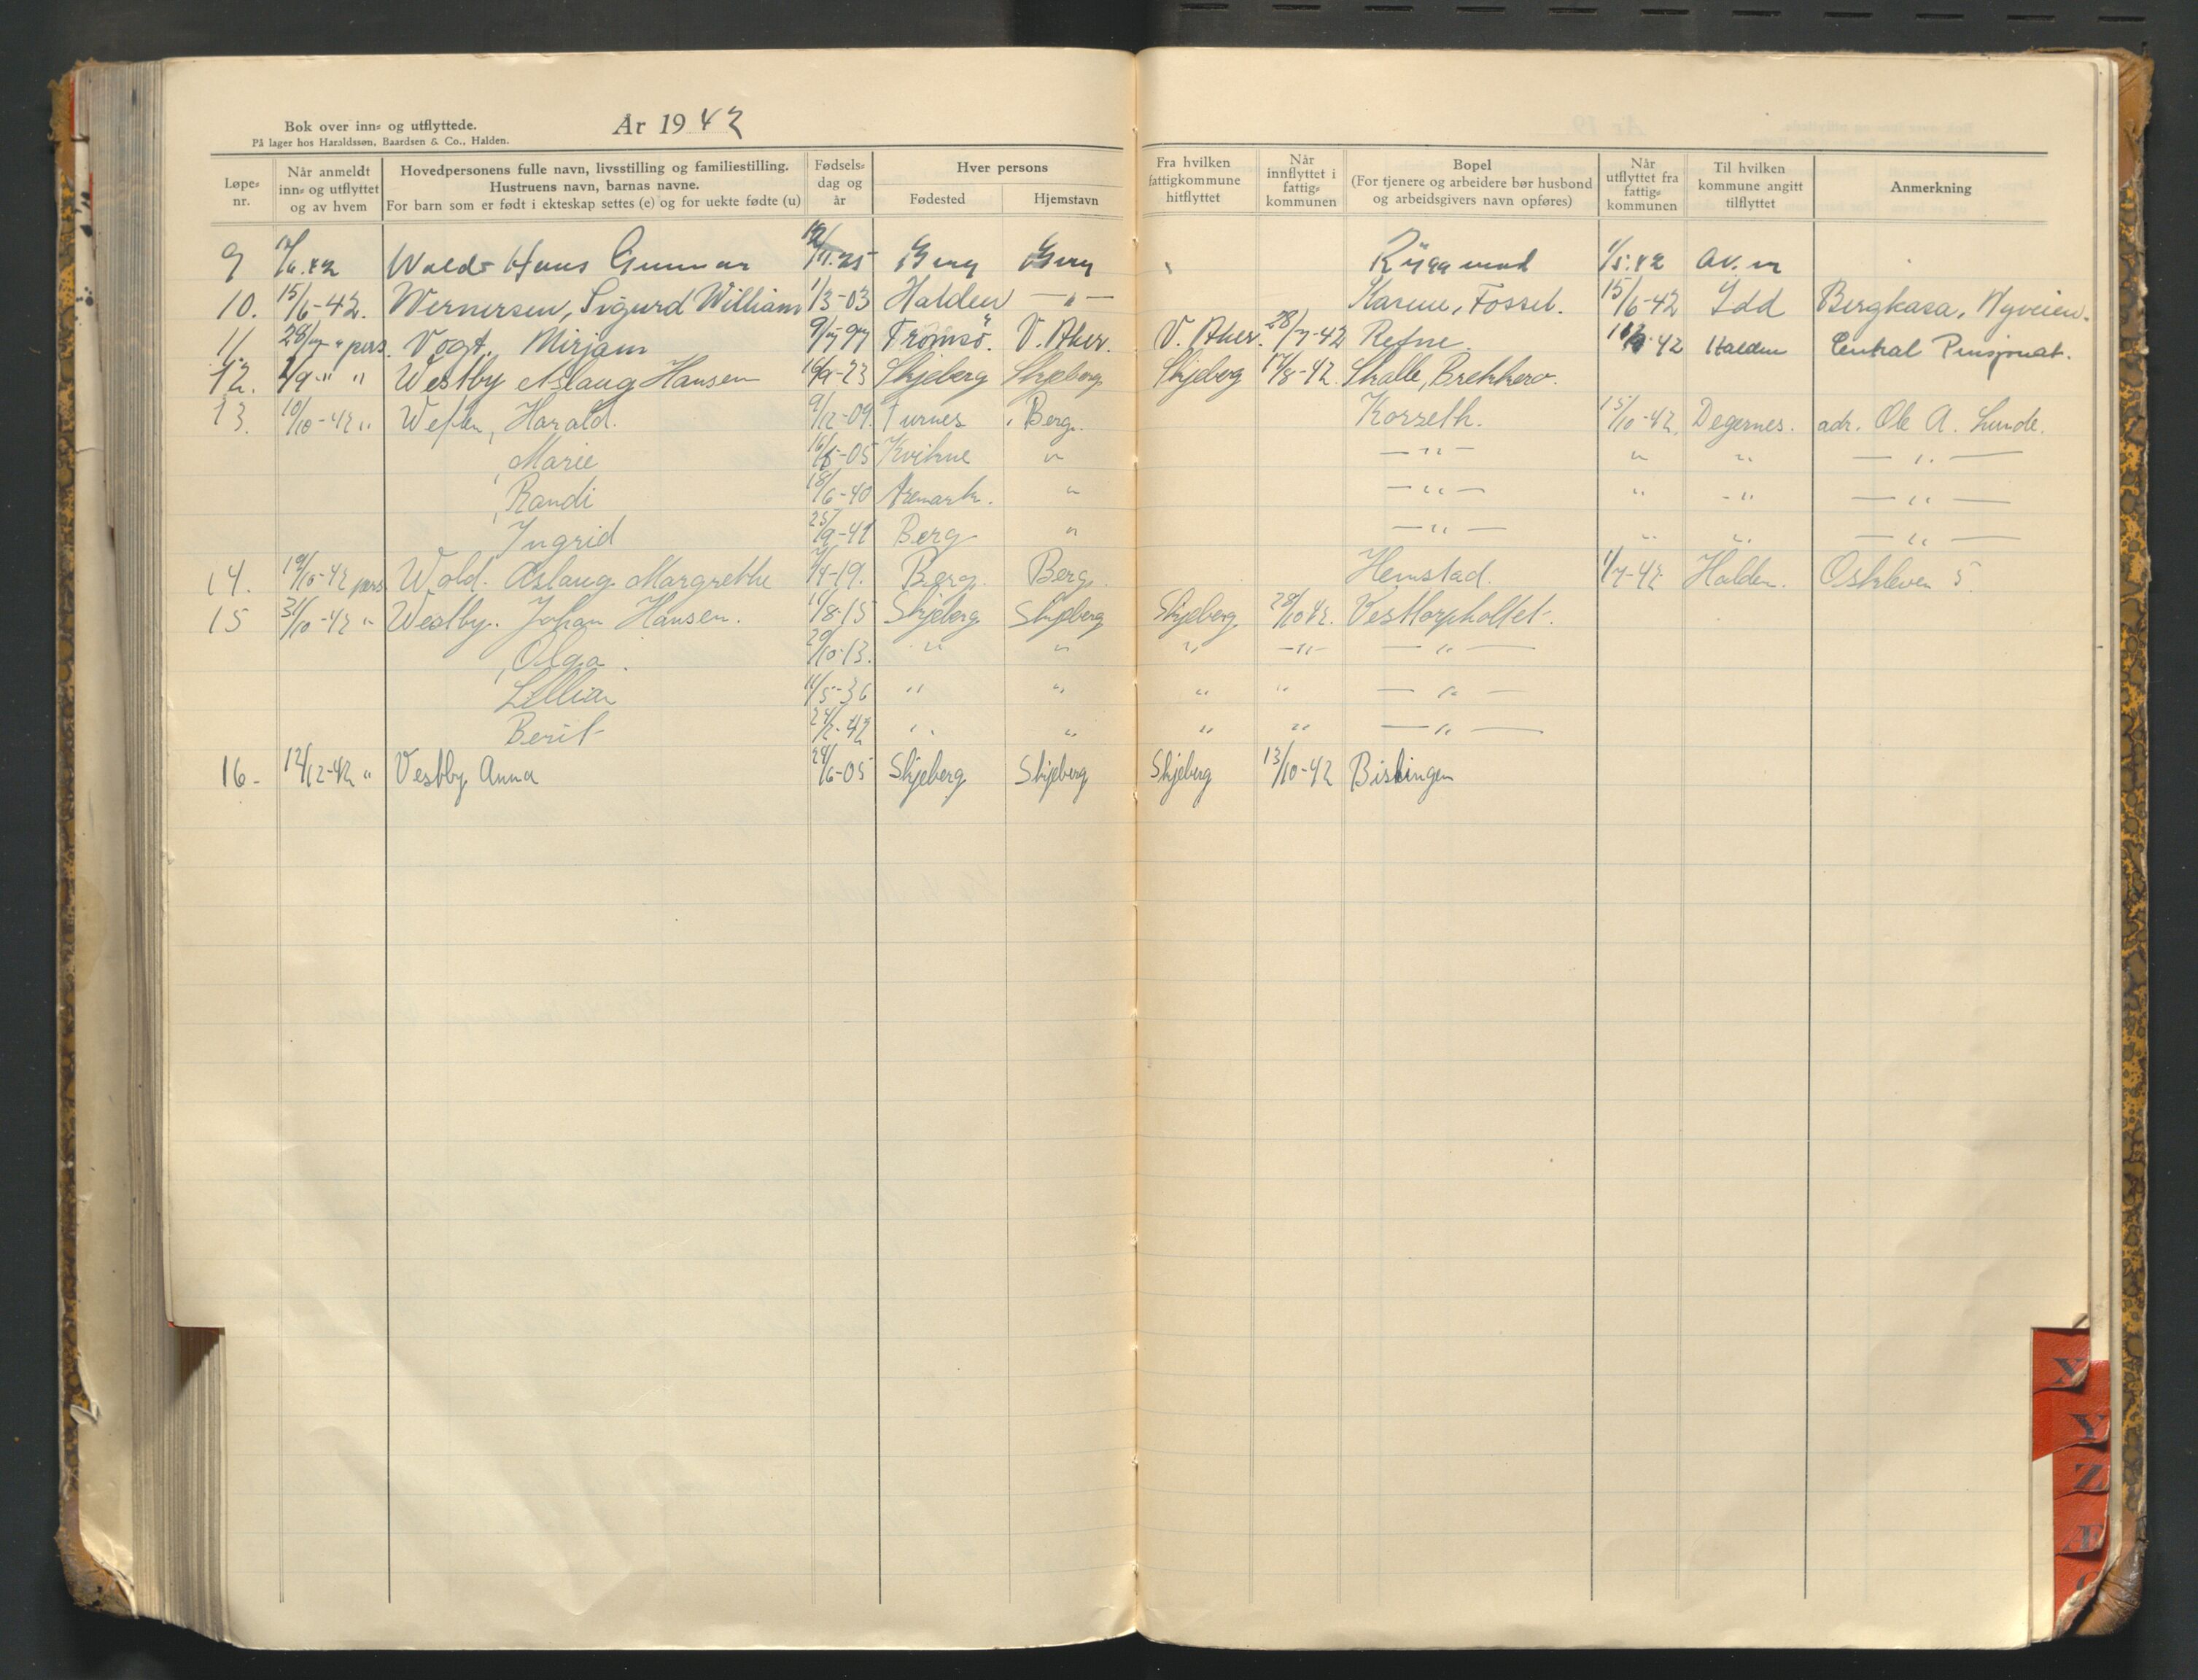 Bok over inn= og utflyttede.
År 1942
På lager hos Haraldssøn, Baardsen & Co., Halden.
Løpe=
nr.
Når anmeldt
inn= og utflyttet
og av hvem
Hovedpersonens fulle navn, livsstilling og familiestilling.
Hustruens navn, barnas navne.
For barn som er født i ekteskap settes (e) og for uekte fødte (u)
Fødsels=
dag og
år
Hver persons
Fødested
Hjemstavn
Fra hvilken
fattigkommune
hitflyttet
Når
innflyttet i
fattig=
kommunen
Bopel
(For tjenere og arbeidere bør husbond
og arbeidsgivers navn opføres)
Når
utflyttet fra
fattig=
kommunen
Til hvilken
kommune angitt
tilflyttet
Anmerkning
9 Wold Hans Gunnar Berg Berg 1/5.42
10. 15/6-42. Wernersen, Sigurd William 1/3-03 Halden —"— Karine, Fosseb. 15/6-42 Idd Bergkasa, Nyveien.
11. 28/7 " pers. Vogt, Mirjam 9/7-97 Tromsø. V. Aker. V. Aker. 28/7-42 Refne. 42 Halden Central Pensjonat.
12. /9-" " Westby Aslaug Hansen 16/9-23 Skjeberg Skjeberg Skjeberg 17/8-42 Skalle, Brekkero.
13. 10/10-42 " Weflen, Harald. 9/12-09. Furnes Berg. Korseth. 15/10-42. Degernes. adr. Ole A. Lunde.
, Marie 16/ -05 Kvikne " —"— " " —"—
, Randi 18/6-40 Aremark. " —"— " -" —"—
, Ingrid 25/9-41 Berg " —"— " " —"—
14. 19/10-42 pers Wold. Aslaug Margrethe /4-19. Berg. Berg. Hemstad. 1/7-42 Halden. Oskleven 5.
15 31/10-42 " Westby. Johan Hansen. 11/8-15 Skjeberg Skjeberg Skjeberg 28/10 42. Vesttorpholtet.
, Olga. 29/10-13. " " " —"— —"—
, Lillian 11/5-36 " " " " —"—
Berit 24/2-42 " " " " —"—
16- 12/12-42 " Vestby Anna 24/6-05 Skjeberg Skjeberg Skjeberg 13/10-42 Bislingen
X
Y
Z
Æ